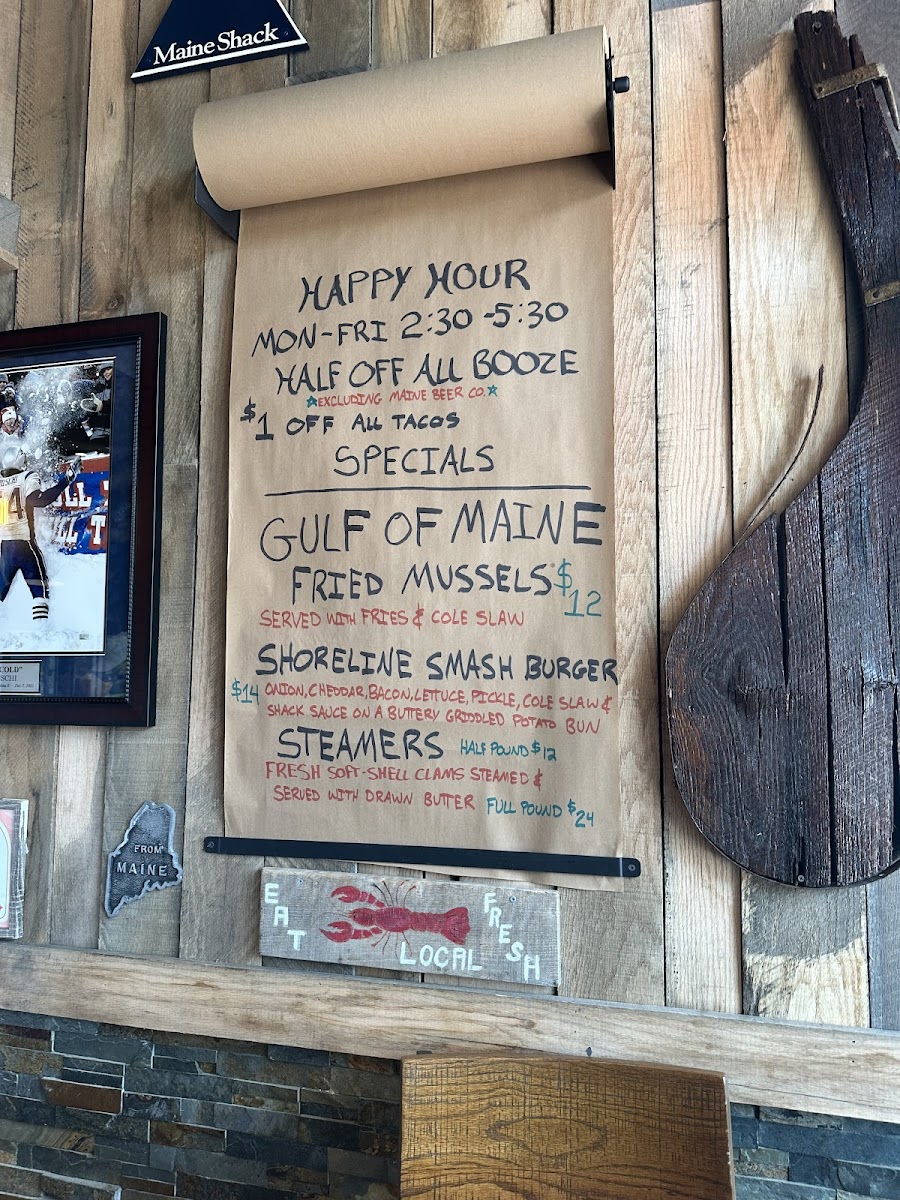 Maine Shack
HAPPY HOUR
MON-FRI 2:30-5:30
HALF OFF ALL BOOZE
☆EXCLUDING MAINE BEER CO.☆
$1 OFF ALL TACOS
SPECIALS
GULF OF MAINE
FRIED MUSSELS $12
SERVED WITH FRIES & COLE SLAW
SHORELINE SMASH BURGER
$14 ONION, CHEDDAR, BACON, LETTUCE, PICKLE, COLE SLAW &
SHACK SAUCE ON A BUTTERY GRIDDLED POTATO BUN
STEAMERS HALF POUND $12
FRESH SOFT-SHELL CLAMS STEAMED &
SERVED WITH DRAWN BUTTER FULL POUND $24
FROM
MAINE
EAT
LOCAL
FRESH